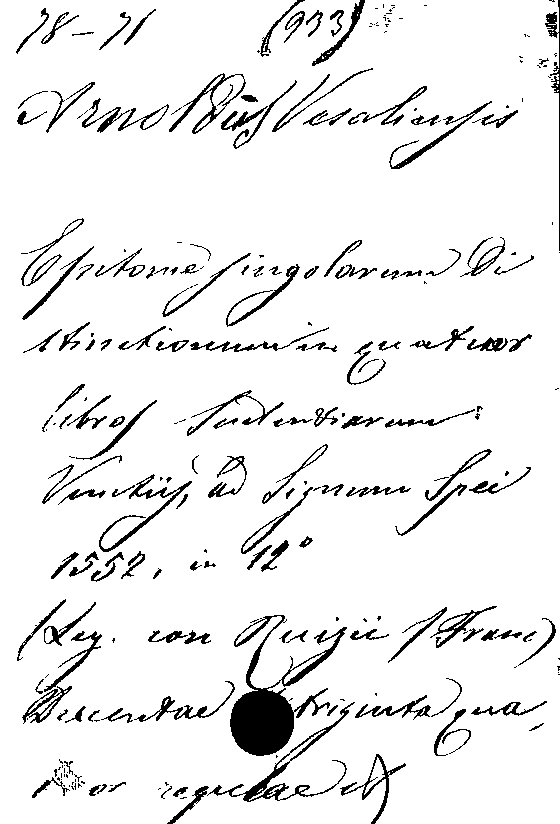 78-71 (933)
Arnoldus Vesaliensis
Epitome singolarum Di
stinctionum in quatuor
libros Sententiarum:
Venetiis, ad Signum Spei
1552, in 12°
(Leg. con Ruizii (Franc)
Ducentae triginta qua,
tuor regulae &)